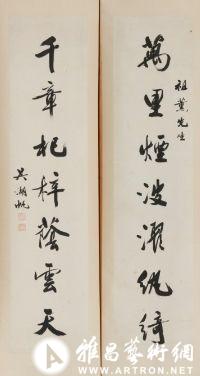 祖薰先生
萬里煙波濯紈綺
千章杞梓蔭雲天
吳湖帆
雅昌藝術網
WWW.ARTRON.NET